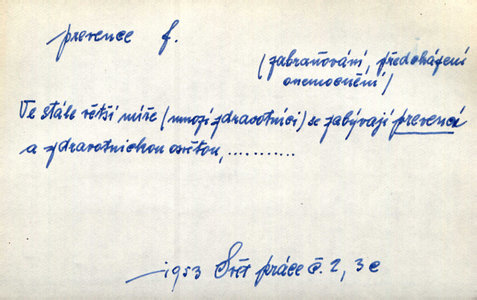 prevence f.
(zabraňování, předcházení
onemocnění)
Ve stále větší míře (mnozí zdravotníci) se zabývají prevencí
a zdravotnickou osvětou, ...........
1953 Svět práce č. 2, 3c